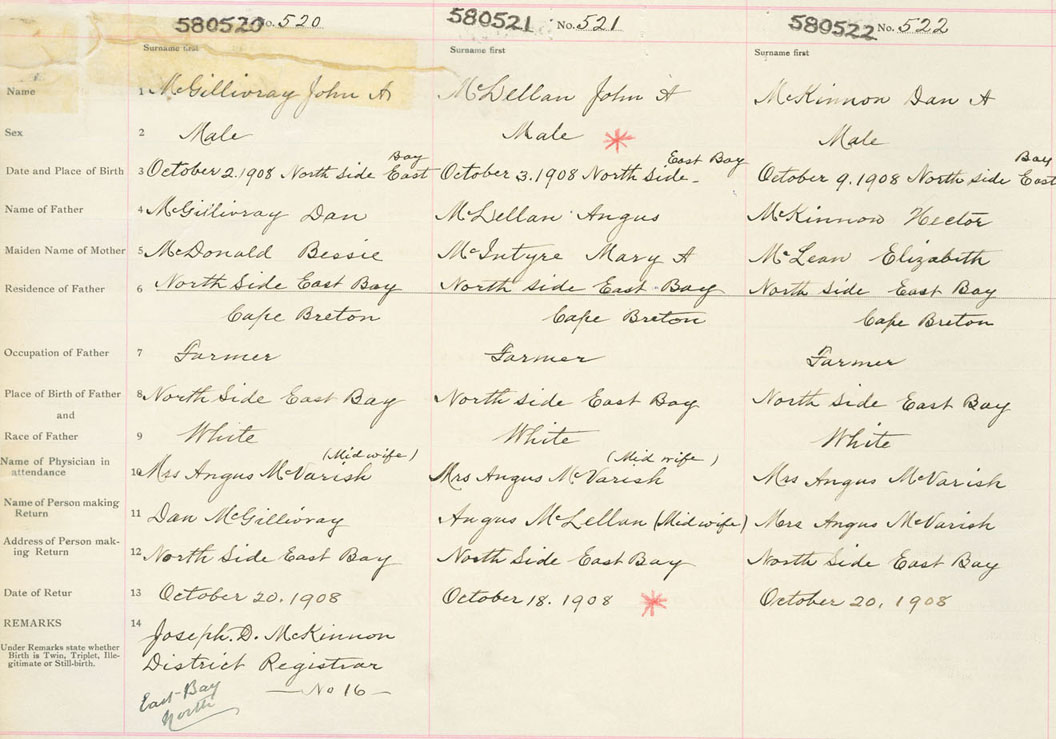 580520 No. 520 580521 No. 521 580522 No. 522
Surname first Surname first Surname first
Name 1 McGillivray John A McLellan John A McKinnon Dan A
Sex 2 Male Male Male
Bay East Bay Bay
Date and Place of Birth 3 October 2. 1908 North Side East October 3. 1908 North Side - October 9. 1908 North Side East
Name of Father 4 McGillivray Dan McLellan Angus McKinnon Hector
Maiden Name of Mother 5 McDonald Bessie McIntyre Mary A McLean Elizabeth
Residence of Father 6 North Side East Bay North Side East Bay North Side East Bay
Cape Breton Cape Breton Cape Breton
Occupation of Father 7 Farmer Farmer Farmer
Place of Birth of Father 8 North Side East Bay North Side East Bay North Side East Bay
and
Race of Father 9 White White White
(Midwife) (Mid wife)
Name of Physician in
attendance 10 Mrs Angus McVarish Mrs Angus McVarish Mrs Angus McVarish
Name of Person making
Return 11 Dan McGillivray Angus McLellan (Midwife) Mrs Angus McVarish
Address of Person mak-
ing Return 12 North Side East Bay North Side East Bay North Side East Bay
Date of Retur 13 October 20. 1908 October 18. 1908 October 20, 1908
REMARKS 14 Joseph. D. McKinnon
Under Remarks state whether
Birth is Twin, Triplet, Ille-
gitimate or Still-birth.
District Registrar
— No 16 —
East Bay
North